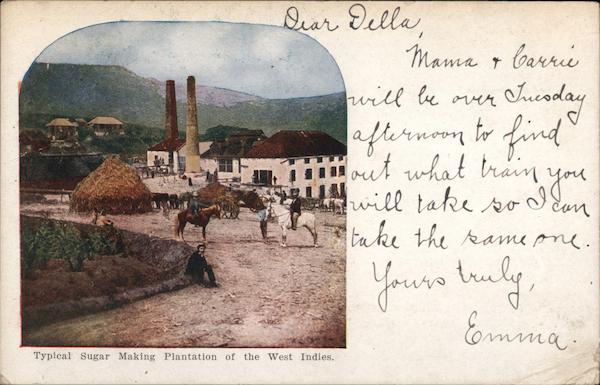 Dear Della,
Mama & Carrie
will be over Tuesday
afternoon to find
out what train you
will take so I can
take the same one.
Yours truly,
Emma.
Typical Sugar Making Plantation of the West Indies.